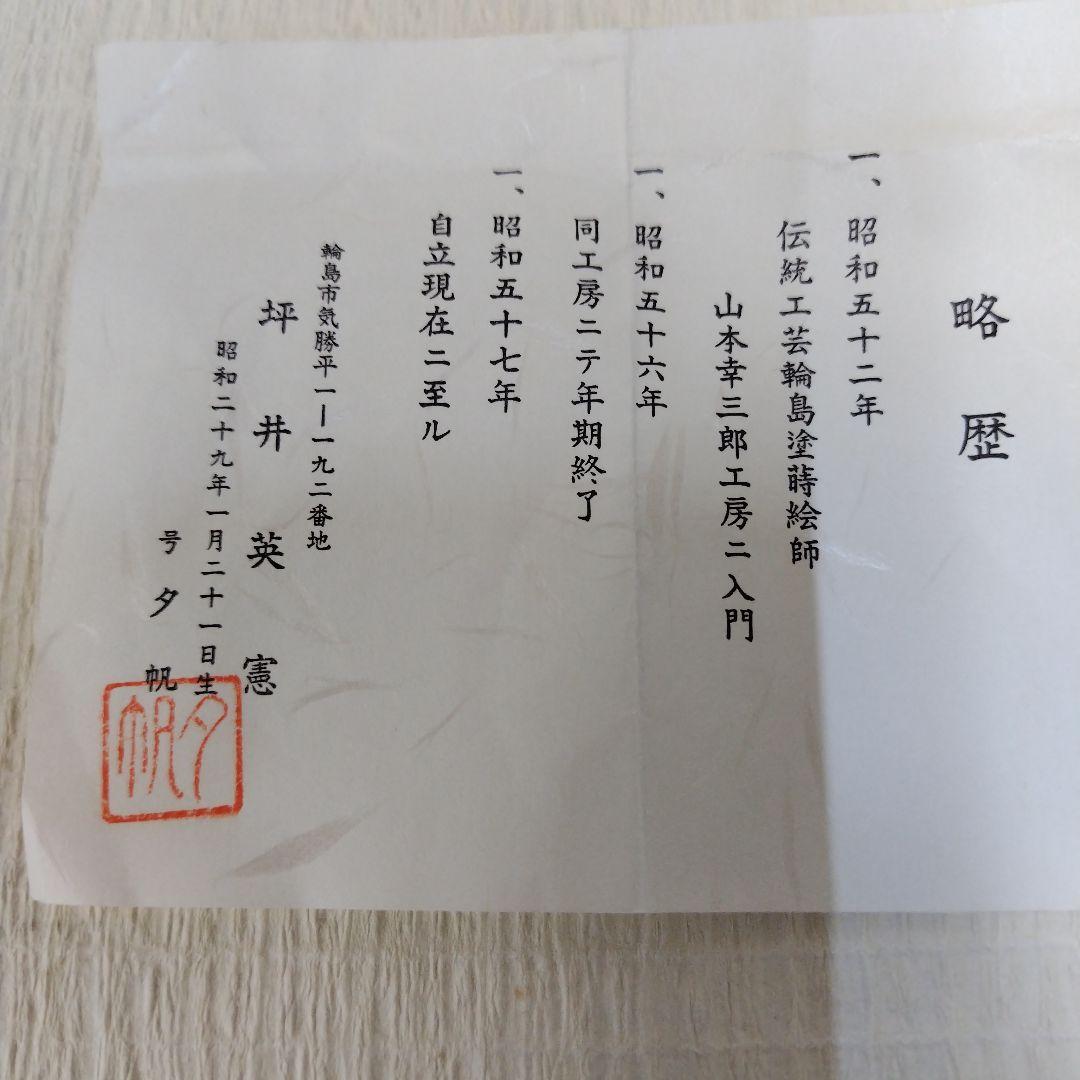 略歴
一、昭和五十二年
伝統工芸輪島塗蒔絵師
山本幸三郎工房ニ入門
一、昭和五十六年
同工房ニテ年期終了
一、昭和五十七年
自立現在ニ至ル
輪島市気勝平一ー一九二番地
坪井英憲
昭和二十九年一月二十一日生
号夕帆
夕帆